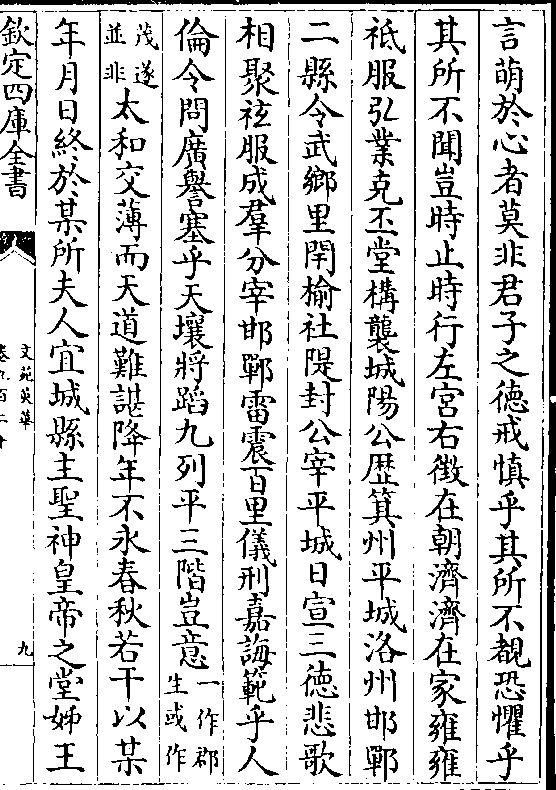 言萌於心者莫非君子之德戒慎乎其所不覩恐懼乎
其所不聞豈時止時行左宮右徴在朝濟濟在家雍雍
祗服弘業克丕堂構襲城陽公歴箕州平城洛州邯鄲
二縣令武鄉里閈榆社隄封公宰平城日宣三徳悲歌
相聚袨服成羣分宰邯鄲雷震百里儀刑嘉誨範乎人
倫令問廣譽塞乎天壤將蹈九列平三階豈意一作郡生或作
茂遂並非太和交薄而天道難諶降年不永春秋若干以某
年月日終於某所夫人宜城縣主聖神皇帝之堂姊王
欽定四庫全書
文苑英華
卷九百二十
九